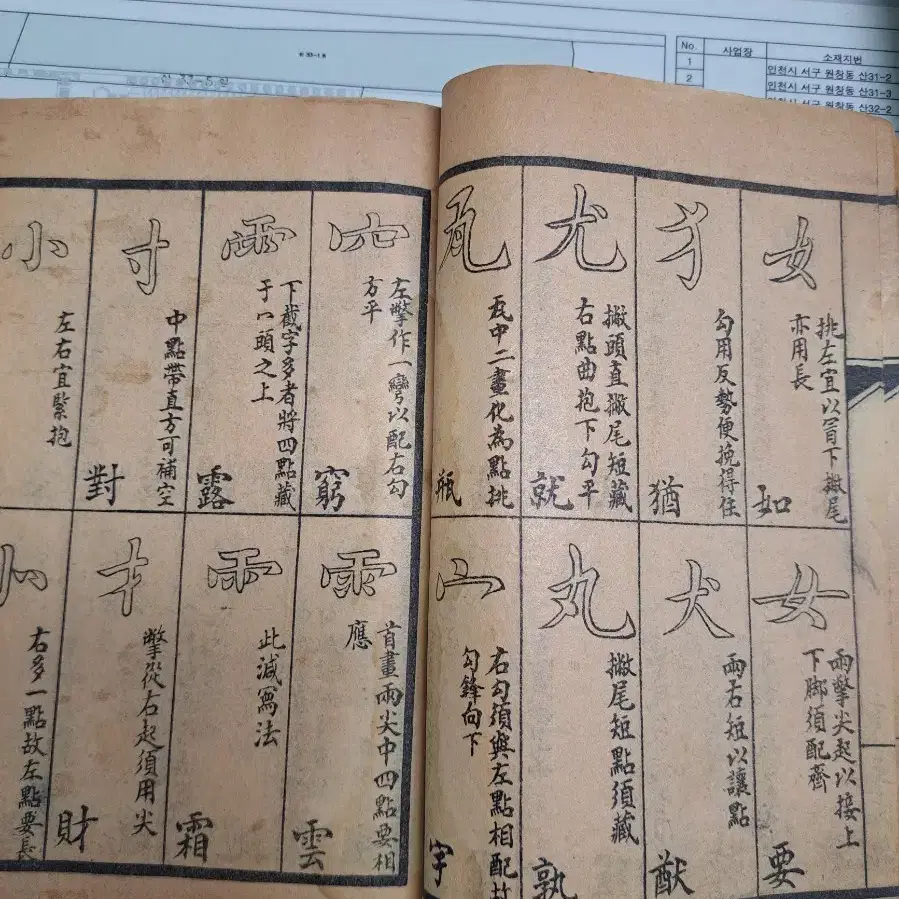 No. 사업장 소재지번
1 인천시 서구 원창동 산31-2
2 인천시 서구 원창동 산31-3
인천시 서구 원창동 산32-2
女
挑左宜以冒下撇尾
亦用長
如
犭
勾用反勢便挽得住
猶
尤
撇頭直撇尾短藏
右點曲抱下勾平
就
瓦
瓦中二畫化為點挑
瓶
女
兩撆尖起以接上
下脚須配齊
要
犬
兩右短以讓點
猷
丸
撇尾短點須藏
孰
宀
右勾須與左點相配故
勾鋒向下
宇
左撆作一彎以配右勾
方平
窮
雨
下截字多者將四點藏
于冖頭之上
露
寸
中點帶直方可補空
對
小
左右宜緊抱
雨
首畫兩尖中四點要相
應
雲
雨
此減寫法
霜
才
撆從右起須用尖
財
右多一點故左點要長